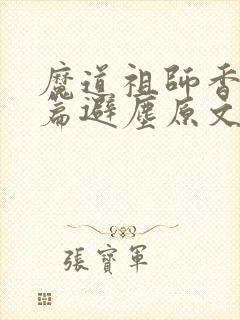 魔道祖師香
篇避塵原文
張寶軍